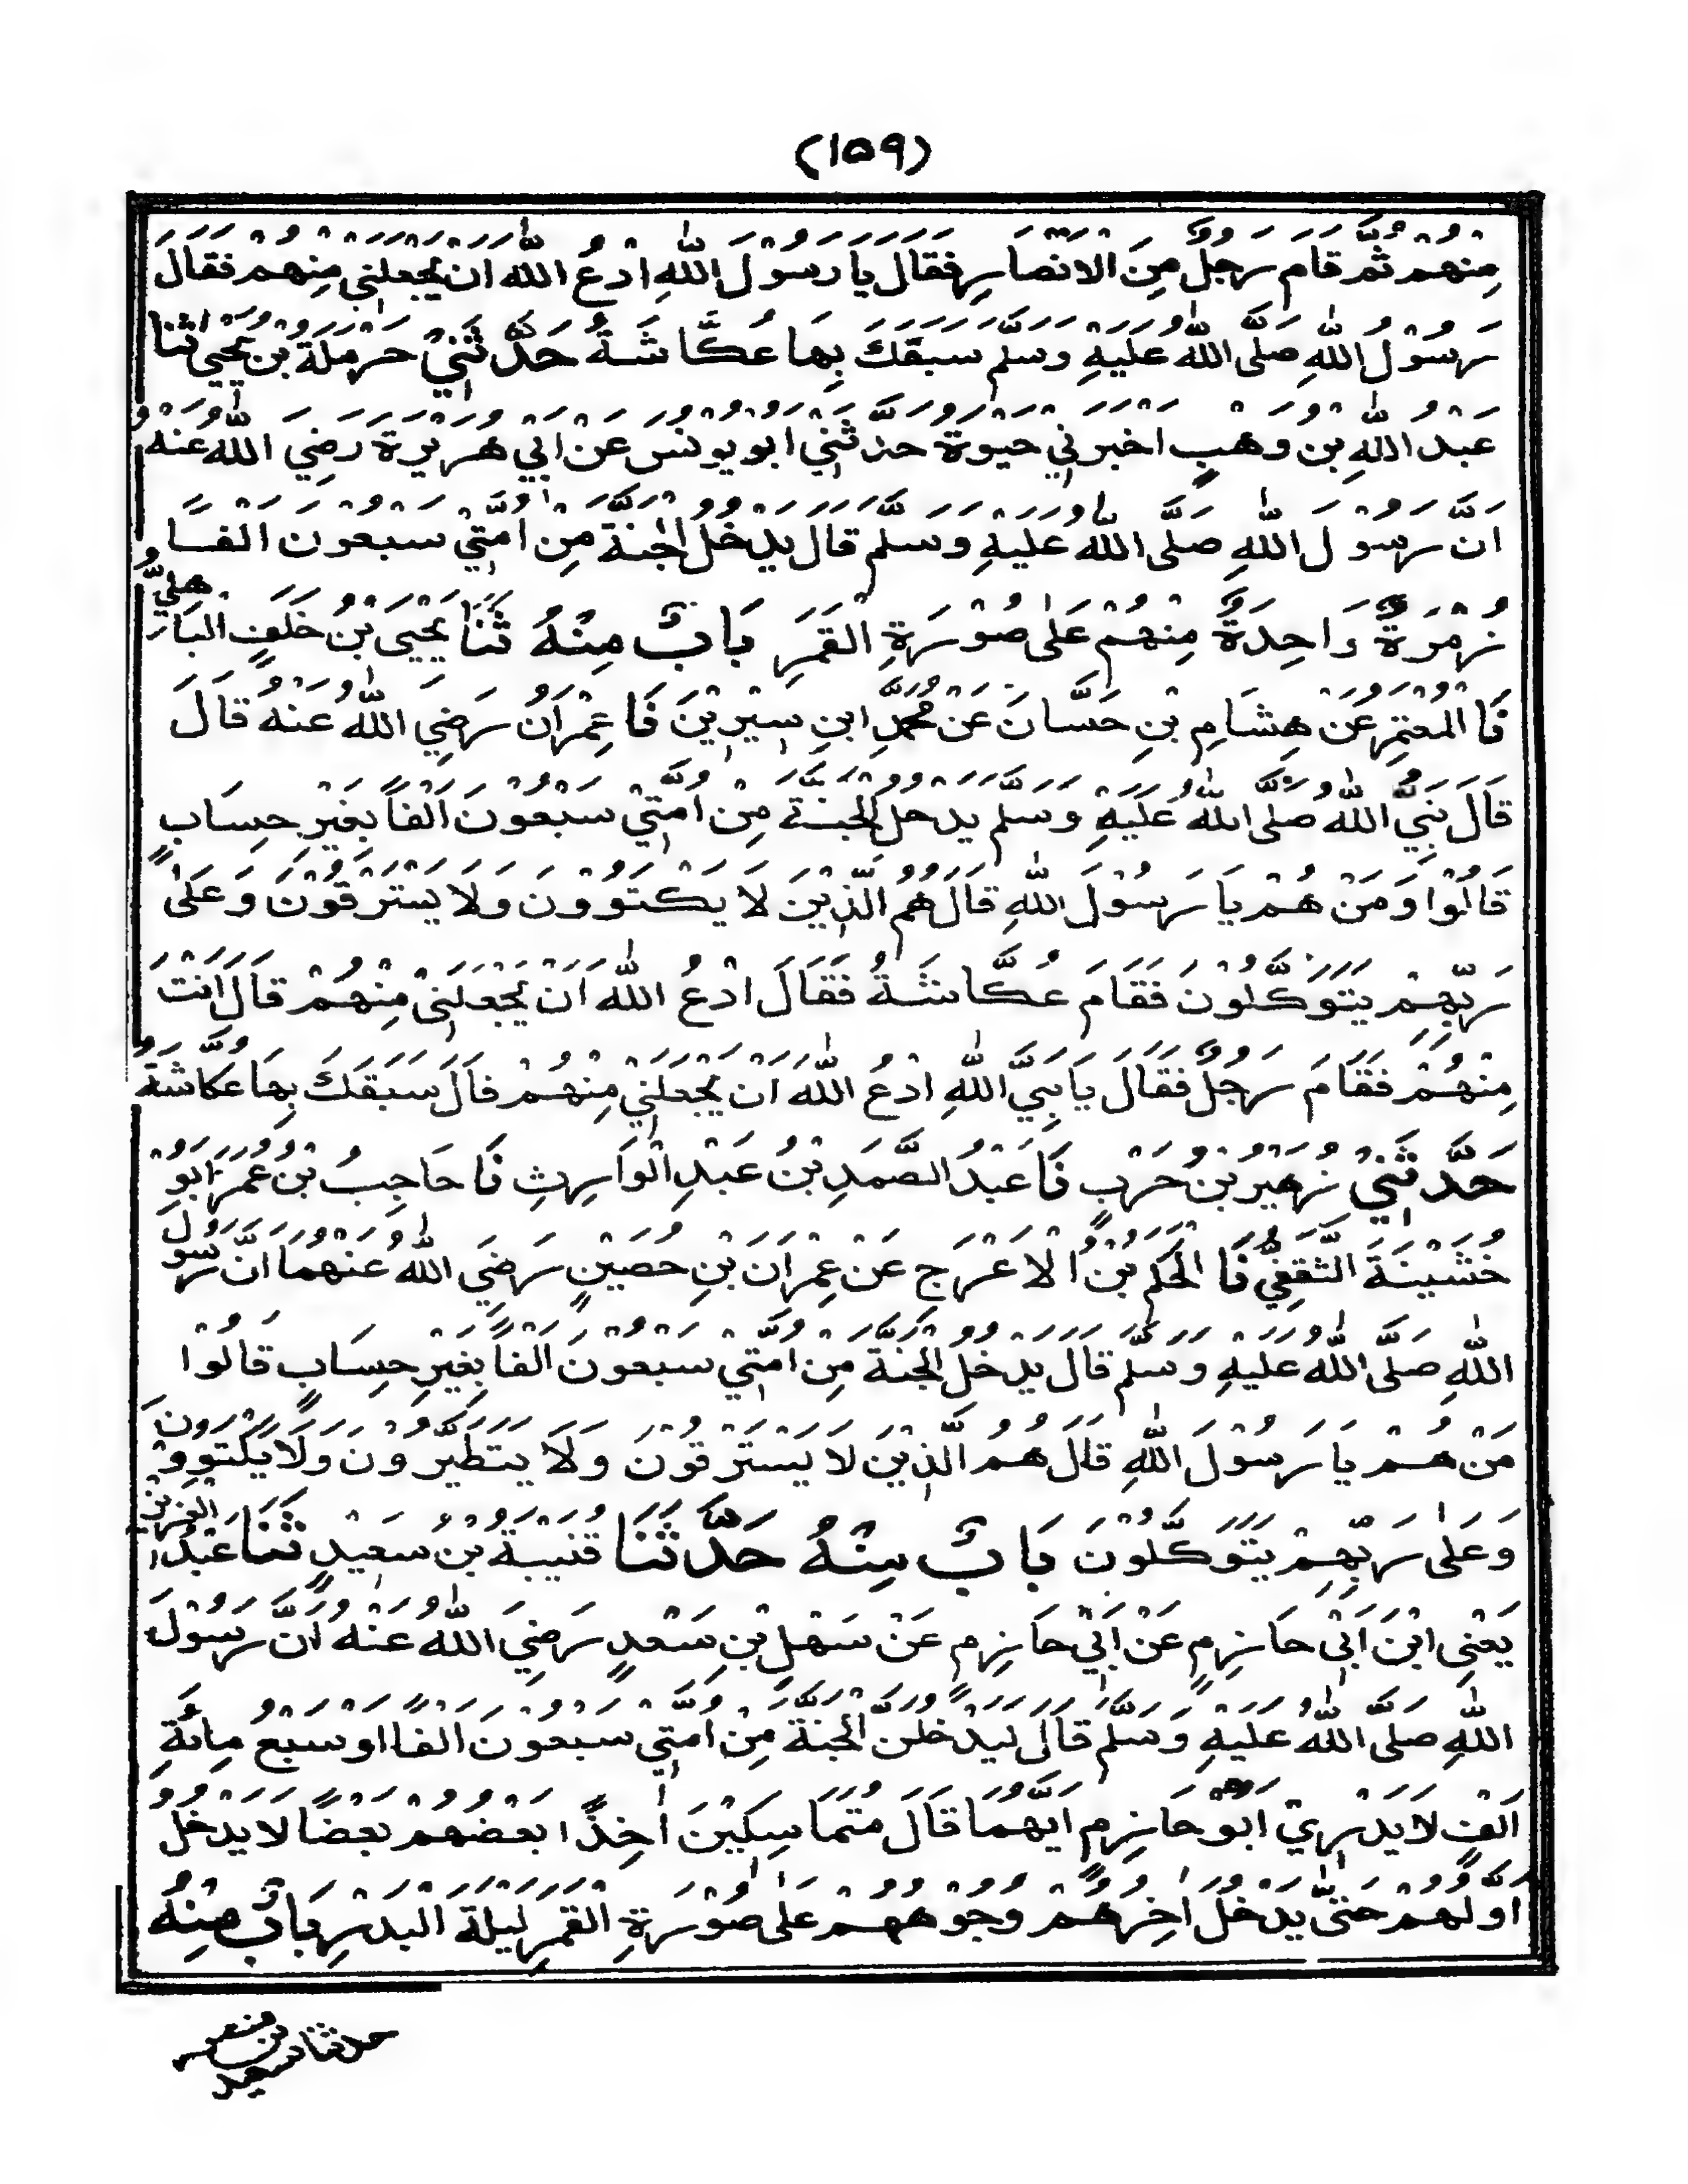 (١٥٩)
مِنْهُمْ ثُمَّ قَامَ رَجُلٌ مِنَ الْاَنْصَارِ فَقَالَ يَا رَسُوْلَ اللّٰهِ ادْعُ اللّٰهَ اَنْ يَجْعَلَنِيْ مِنْهُمْ فَقَالَ
رَسُوْلُ اللّٰهِ صَلَّى اللّٰهُ عَلَيْهِ وَسَلَّمَ سَبَقَكَ بِهَا عُكَّاشَةُ حَدَّثَنِيْ حَرْمَلَةُ بْنُ يَحْيٰى ثَنَا
عَبْدُ اللّٰهِ بْنُ وَهْبٍ اَخْبَرَنِيْ حَيْوَةُ حَدَّثَنِيْ اَبُوْ يُوْنُسَ عَنْ اَبِيْ هُرَيْرَةَ رَضِيَ اللّٰهُ عَنْهُ
اَنَّ رَسُوْلَ اللّٰهِ صَلَّى اللّٰهُ عَلَيْهِ وَسَلَّمَ قَالَ يَدْخُلُ الْجَنَّةَ مِنْ اُمَّتِيْ سَبْعُوْنَ اَلْفًا
زُمْرَةٌ وَاحِدَةٌ مِنْهُمْ عَلٰى صُوْرَةِ الْقَمَرِ بَابٌ مِنْهُ ثَنَا يَحْيَى بْنُ خَلَفٍ الْبَاهِلِيُّ
نَا الْمُعْتَمِرُ عَنْ هِشَامِ بْنِ حَسَّانَ عَنْ مُحَمَّدِ ابْنِ سِيْرِيْنَ نَا عِمْرَانُ رَضِيَ اللّٰهُ عَنْهُ قَالَ
قَالَ نَبِيُّ اللّٰهِ صَلَّى اللّٰهُ عَلَيْهِ وَسَلَّمَ يَدْخُلُ الْجَنَّةَ مِنْ اُمَّتِيْ سَبْعُوْنَ اَلْفًا بِغَيْرِ حِسَابٍ
قَالُوْا وَمَنْ هُمْ يَا رَسُوْلَ اللّٰهِ قَالَ هُمُ الَّذِيْنَ لَا يَكْتَوُوْنَ وَلَا يَسْتَرْقُوْنَ وَعَلٰى
رَبِّهِمْ يَتَوَكَّلُوْنَ فَقَامَ عُكَّاشَةُ فَقَالَ ادْعُ اللّٰهَ اَنْ يَجْعَلَنِيْ مِنْهُمْ قَالَ اَنْتَ
مِنْهُمْ فَقَامَ رَجُلٌ فَقَالَ يَا نَبِيَّ اللّٰهِ ادْعُ اللّٰهَ اَنْ يَجْعَلَنِيْ مِنْهُمْ قَالَ سَبَقَكَ بِهَا عُكَّاشَةُ
حَدَّثَنِيْ زُهَيْرُ بْنُ حَرْبٍ نَا عَبْدُ الصَّمَدِ بْنُ عَبْدِ الْوَارِثِ نَا حَاجِبُ بْنُ عُمَرَ اَبُوْ
خُشَيْنَةَ الثَّقَفِيُّ نَا الْحَكَمُ بْنُ الْاَعْرَجِ عَنْ عِمْرَانَ بْنِ حُصَيْنٍ رَضِيَ اللّٰهُ عَنْهُمَا اَنَّ رَسُوْلَ
اللّٰهِ صَلَّى اللّٰهُ عَلَيْهِ وَسَلَّمَ قَالَ يَدْخُلُ الْجَنَّةَ مِنْ اُمَّتِيْ سَبْعُوْنَ اَلْفًا بِغَيْرِ حِسَابٍ قَالُوْا
مَنْ هُمْ يَا رَسُوْلَ اللّٰهِ قَالَ هُمُ الَّذِيْنَ لَا يَسْتَرْقُوْنَ وَلَا يَتَطَيَّرُوْنَ وَلَا يَكْتَوُوْنَ
وَعَلٰى رَبِّهِمْ يَتَوَكَّلُوْنَ بَابٌ مِنْهُ حَدَّثَنَا قُتَيْبَةُ بْنُ سَعِيْدٍ ثَنَا عَبْدُ الْعَزِيْزِ
يَعْنِى ابْنَ اَبِيْ حَازِمٍ عَنْ اَبِيْ حَازِمٍ عَنْ سَهْلِ بْنِ سَعْدٍ رَضِيَ اللّٰهُ عَنْهُ اَنَّ رَسُوْلَ
اللّٰهِ صَلَّى اللّٰهُ عَلَيْهِ وَسَلَّمَ قَالَ لَيَدْخُلَنَّ الْجَنَّةَ مِنْ اُمَّتِيْ سَبْعُوْنَ اَلْفًا اَوْ سَبْعُ مِائَةِ
اَلْفٍ لَا يَدْرِيْ اَبُوْ حَازِمٍ اَيَّهُمَا قَالَ مُتَمَاسِكِيْنَ اٰخِذًا بَعْضُهُمْ بَعْضًا لَا يَدْخُلُ
اَوَّلُهُمْ حَتّٰى يَدْخُلَ اٰخِرُهُمْ وُجُوْهُهُمْ عَلٰى صُوْرَةِ الْقَمَرِ لَيْلَةَ الْبَدْرِ بَابٌ مِنْهُ
حدثنا سعيد بن منصور